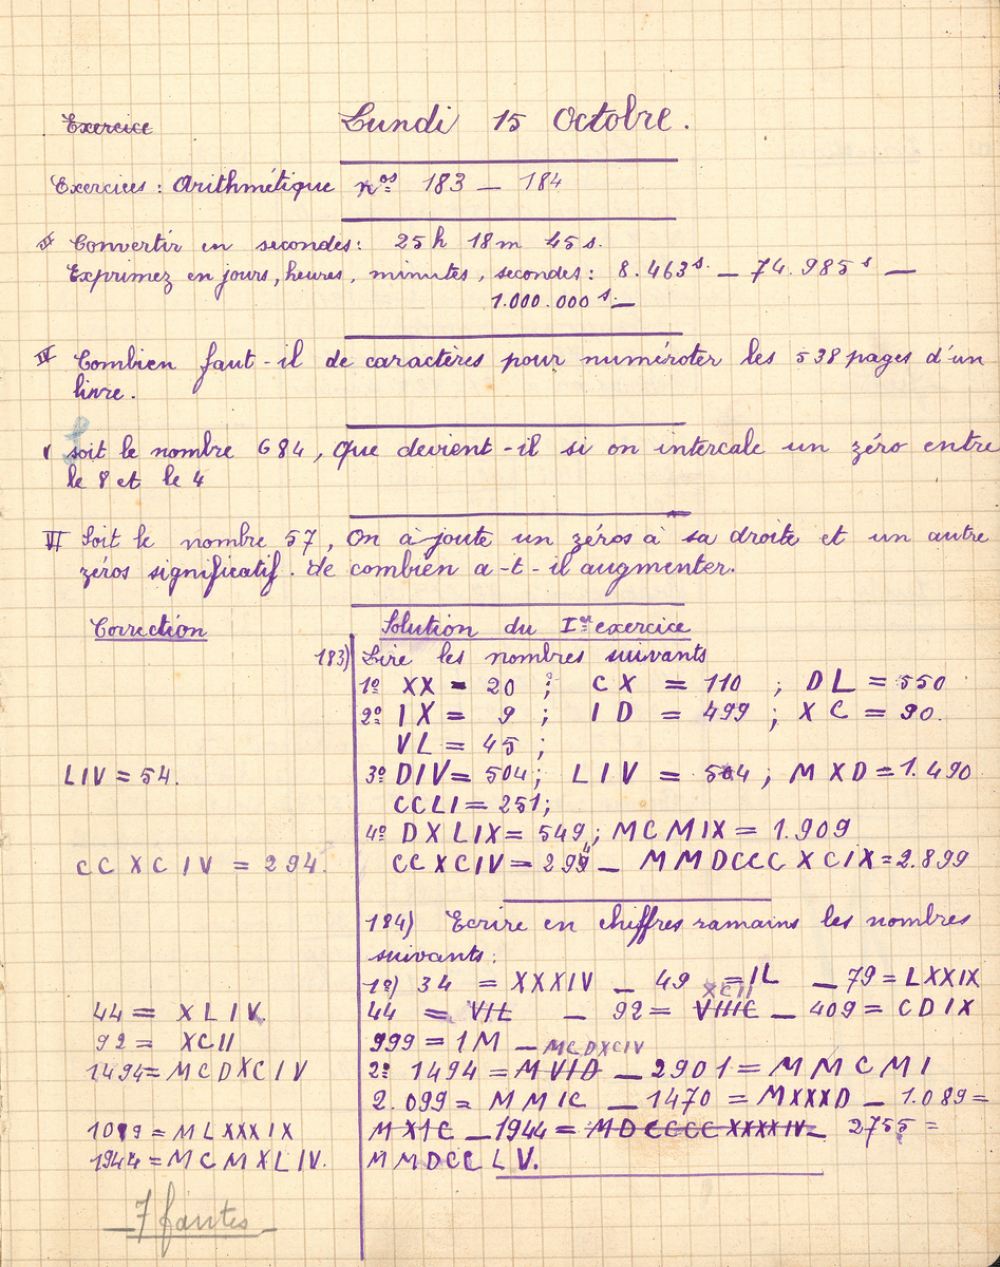 Exercice
Lundi 15 Octobre.
Exercices : Arithmétique nos 183 — 184
II Convertir en secondes : 25h 18m 45s.
Exprimez en jours, heures, minutes, secondes : 8.463s. — 74.985s —
1.000.000s.—
IV Combien faut-il de caractères pour numéroter les 538 pages d'un
livre.
V Soit le nombre 684, Que devient-il si on intercale un zéro entre
le 8 et le 4
VI Soit le nombre 57, On à joute un zéros à sa droite et un autre
zéros significatif. de combien a-t-il augmenter.
Correction
Solution du Ier exercice
183) Lire les nombres suivants
1º XX = 20 ; CX = 110 ; DL = 550
2º IX = 9 ; ID = 499 ; XC = 90.
VL = 45 ;
LIV = 54.
3º DIV = 504; LIV = 504 ; MXD = 1.490
CCLI = 251;
4º DXLIX = 549; MCMIX = 1.909
CCXCIV = 294.
CCXCIV = 294 — MMDCCCXCIX = 2.899
184) Ecrire en chiffres ramains les nombres
suivants :
1º) 34 = XXXIV — 49 = IL — 79 = LXXIX
XCII
44 = XLIV.
44 = VIL — 92 = VIIIC — 409 = CDIX
92 = XCII
999 = 1M — MCDXCIV
1494 = MCDXCIV
2º 1494 = MVID — 2901 = MMCMI
2.099 = MMIC — 1470 = MXXXD — 1.089 =
1089 = MLXXXIX
MXIC — 1944 = MDCCCCXXXXIV — 2755 =
1944 = MCMXLIV.
MMDCCLV.
7 fautes